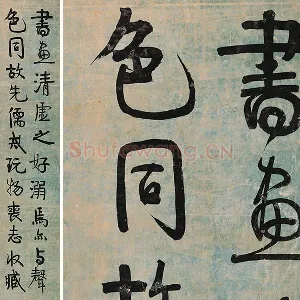 書畫清虛之好溺焉亦与聲
色同故先儒戒玩物喪志收藏
書畫
色同故
Shufawang.CN